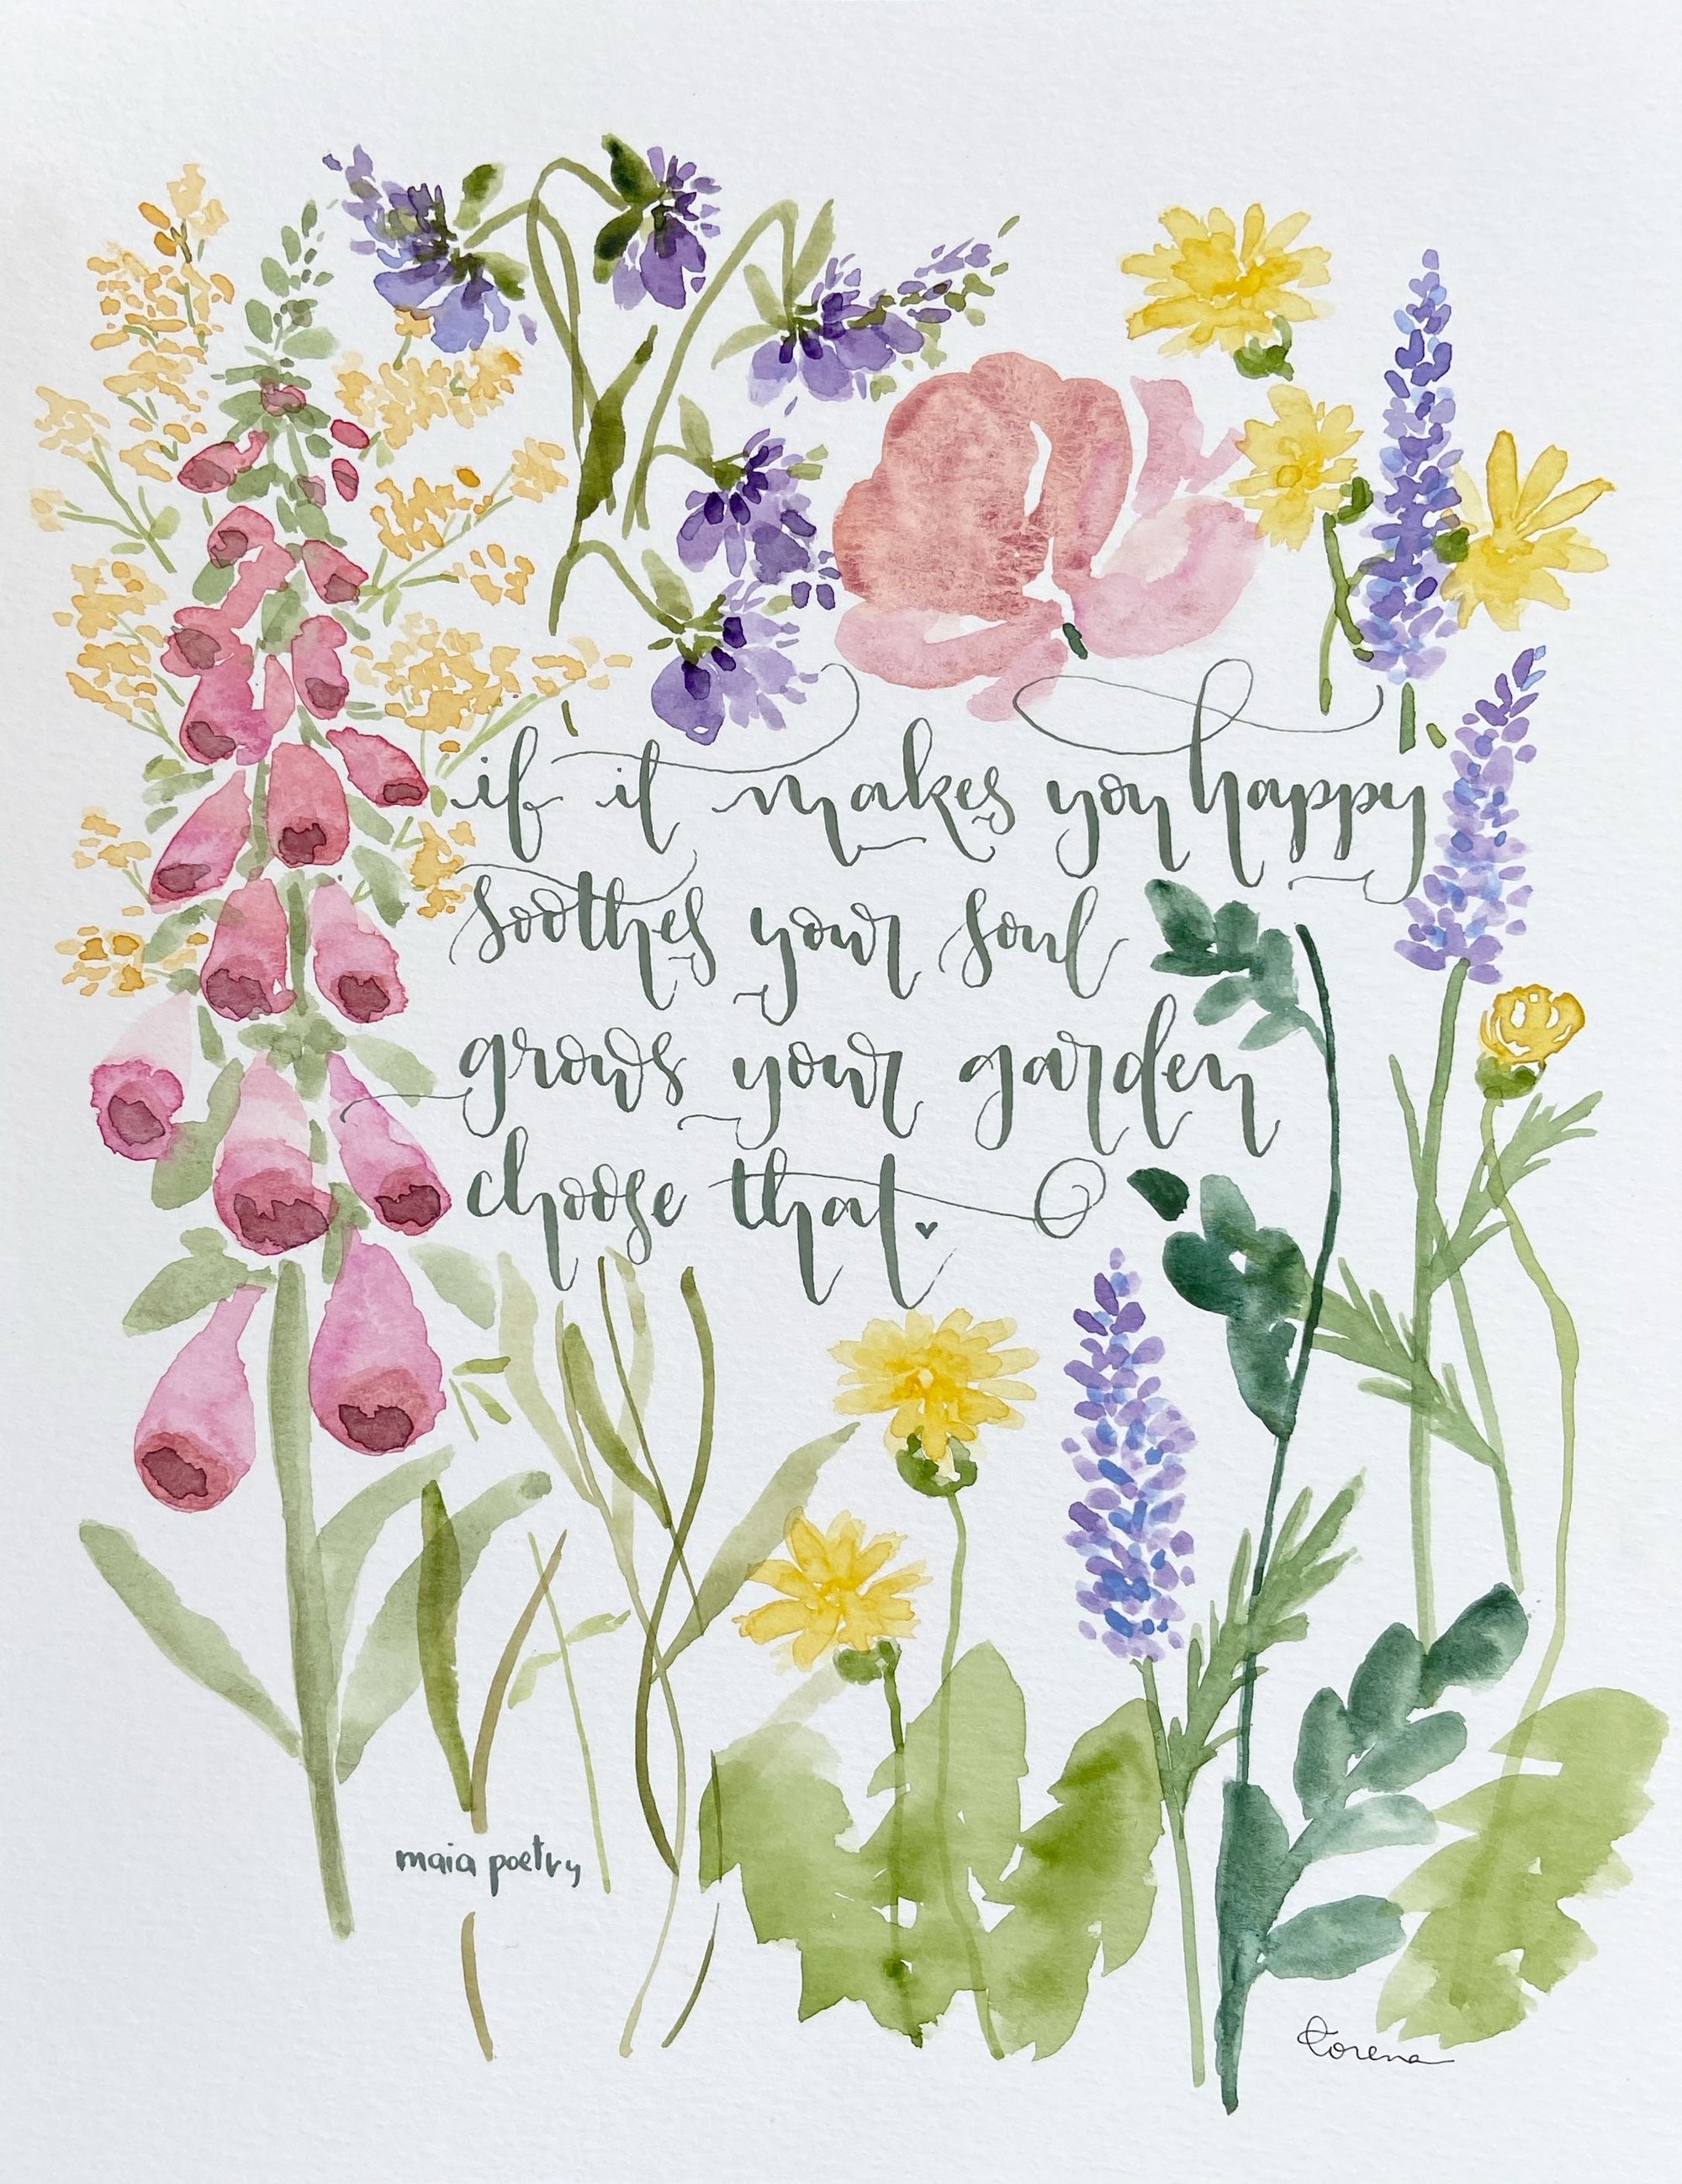 if it makes you happy
soothes your soul
grows your garden
choose that.
maia poetry
Lorena